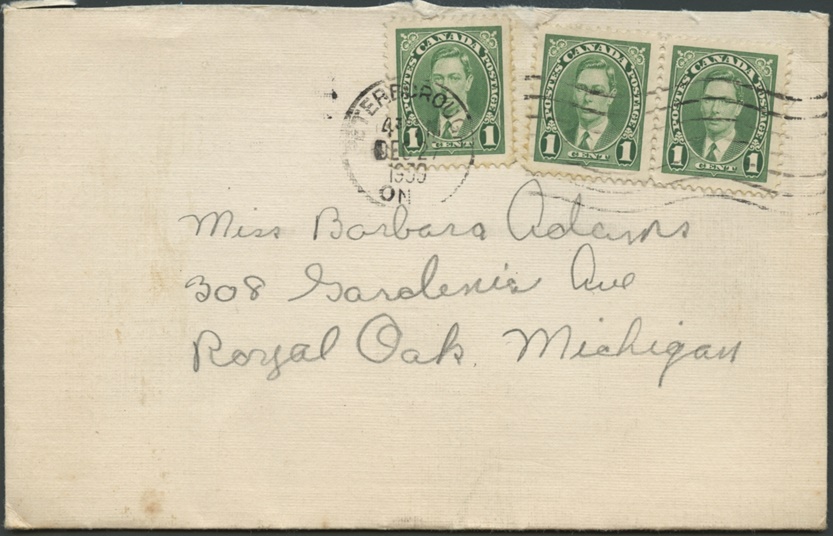 POSTES CANADA POSTAGE
1 CENT 1
POSTES CANADA POSTAGE
1 CENT 1
POSTES CANADA POSTAGE
1 CENT 1
ON
Miss Barbara Adams
308 Gardenia Ave
Royal Oak, Michigan